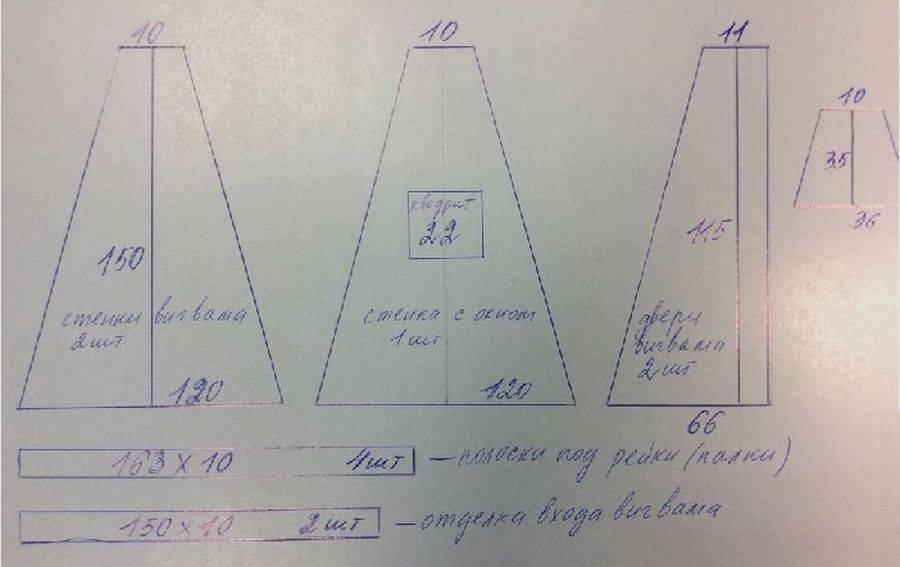 10
10
11
10
35
36
квадрат
22
115
150
стенки вигвама
2шт
120
стенка с окном
1шт
120
двери
вигвама
2шт
66
163 x 10 4шт — полоски под рейки (палки)
150 x 10 2шт — отделка входа вигвама